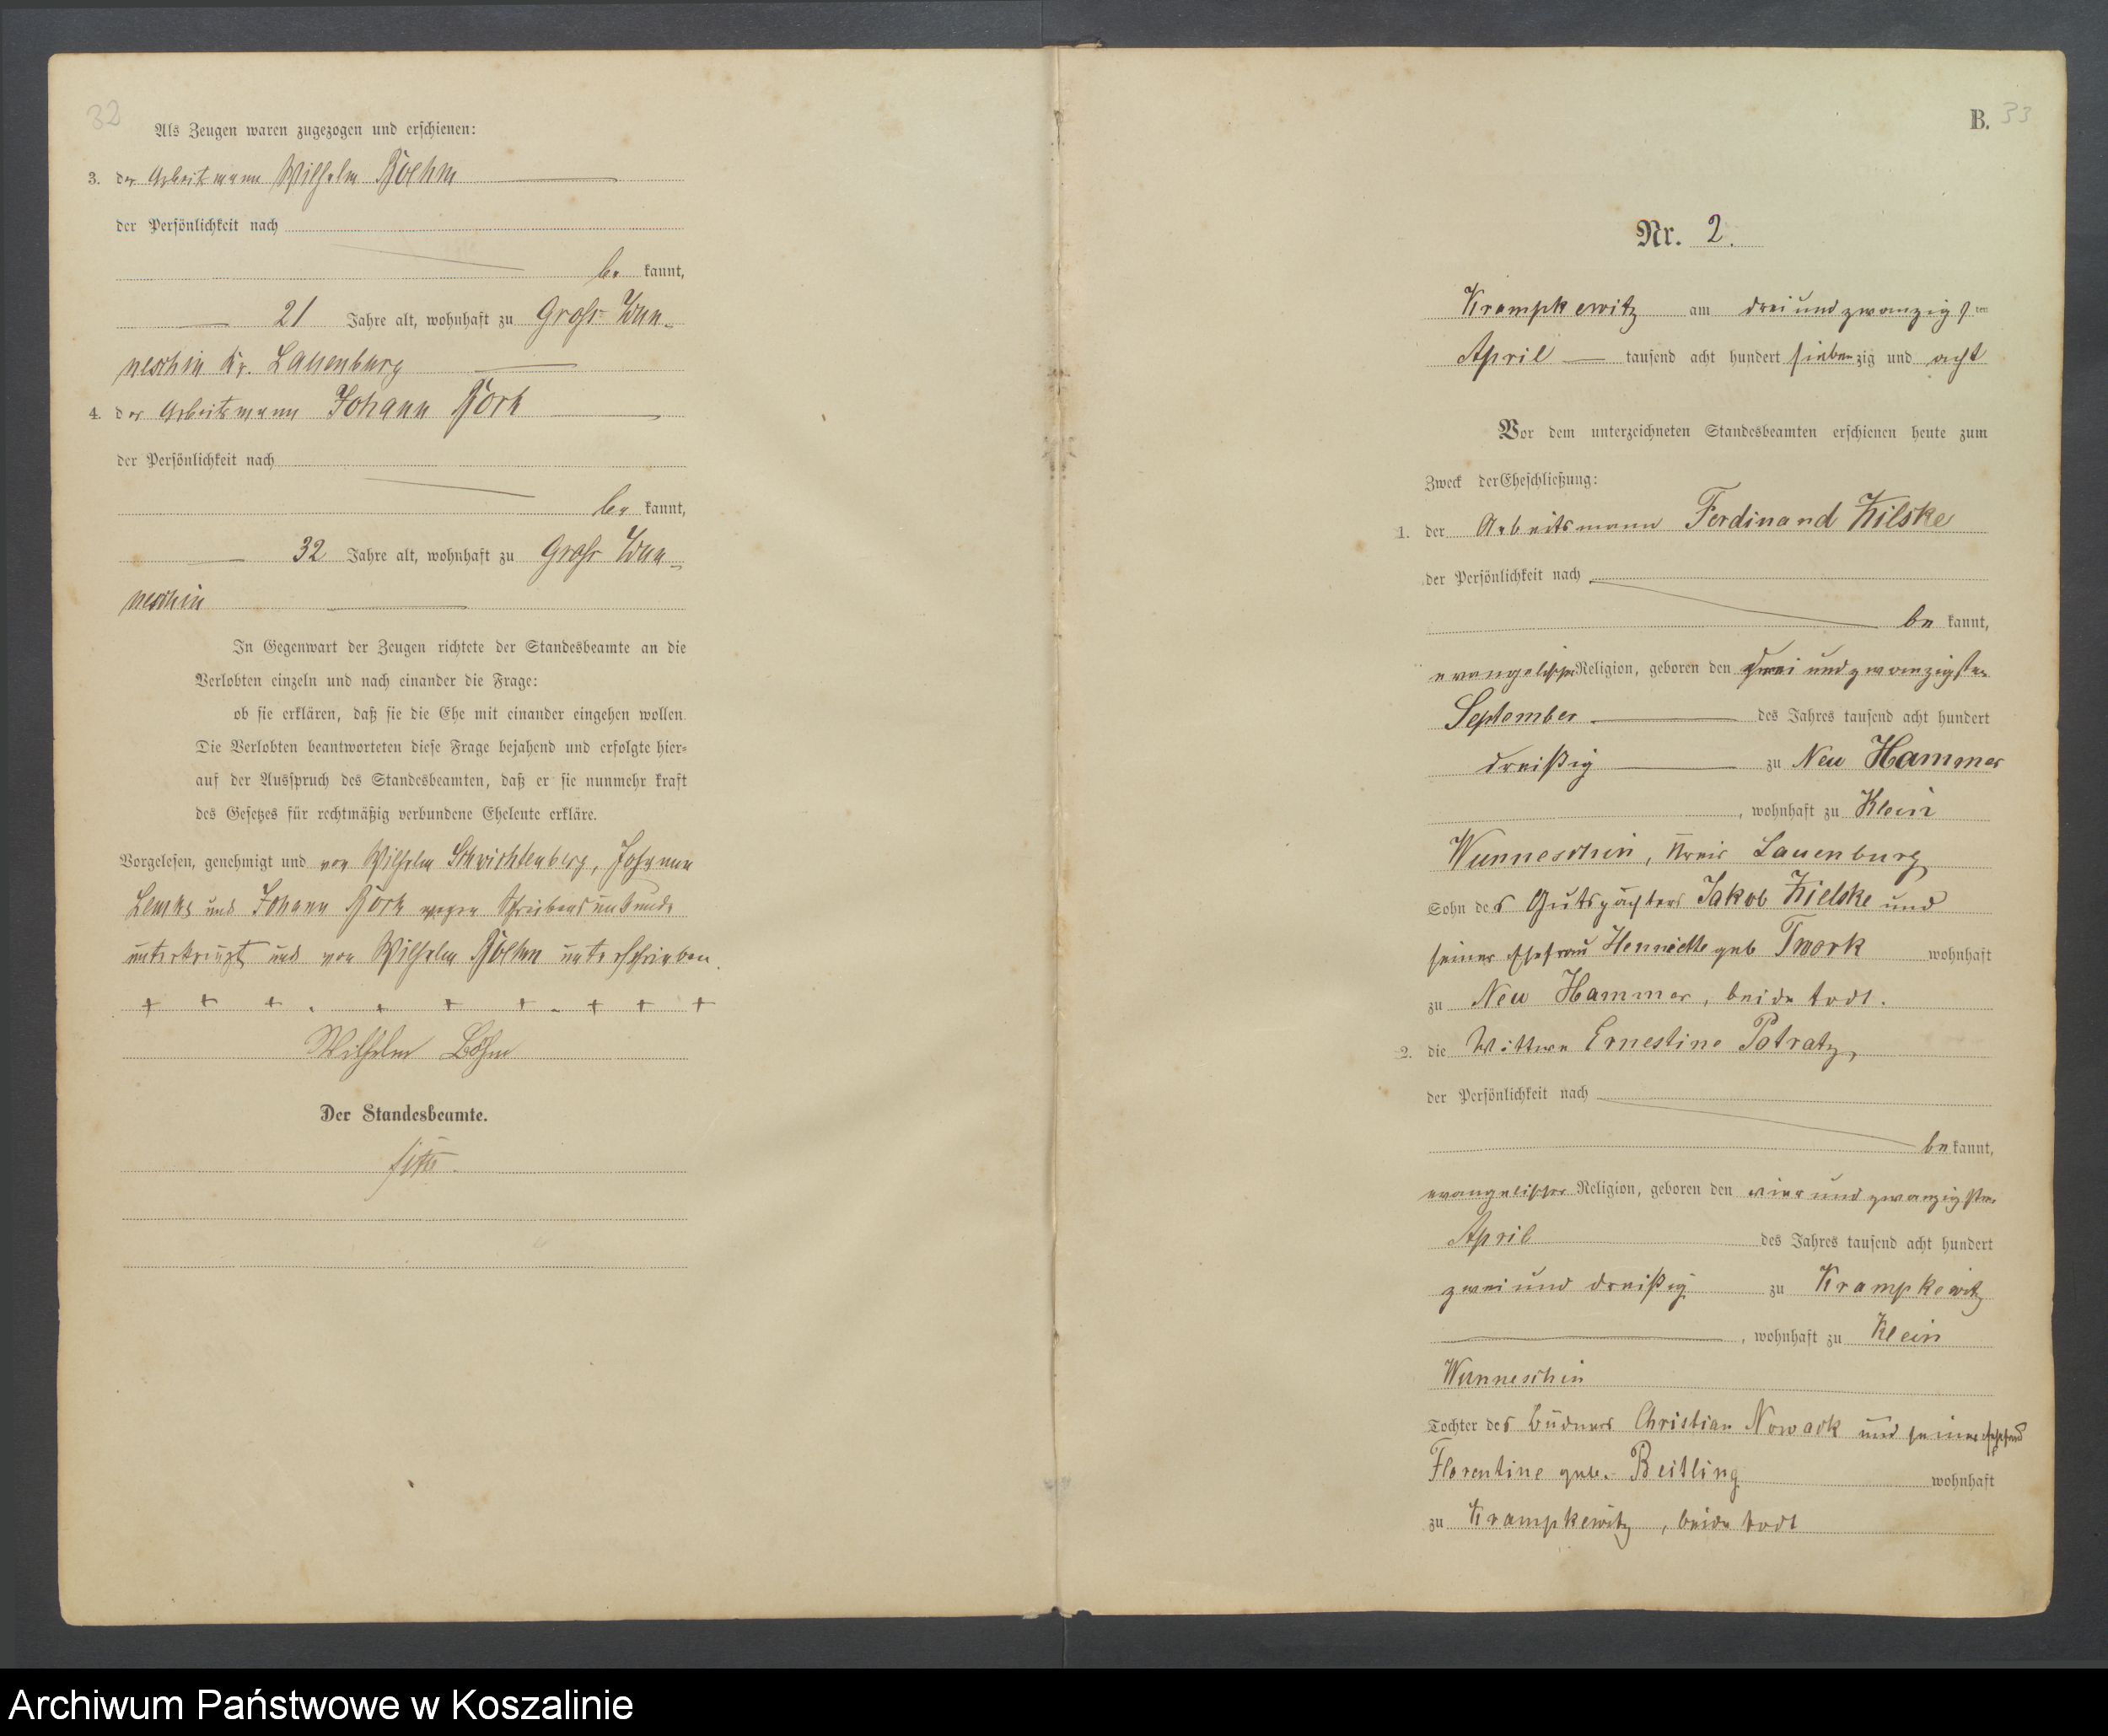 32
Als Zeugen waren zugezogen und erschienen:
3. der Arbeitsmann Wilhelm Boehm
der Persönlichkeit nach
be kannt,
21 Jahre alt, wohnhaft zu Groß Wun-
neschin Kr. Lauenburg
4. der Arbeitsmann Johann Bork
der Persönlichkeit nach
be kannt,
32 Jahre alt, wohnhaft zu Groß Wun-
neschin
In Gegenwart der Zeugen richtete der Standesbeamte an die
Verlobten einzeln und nach einander die Frage:
ob sie erklären, daß sie die Ehe mit einander eingehen wollen.
Die Verlobten beantworteten diese Frage bejahend und erfolgte hier-
auf der Ausspruch des Standesbeamten, daß er sie nunmehr kraft
des Gesetzes für rechtmäßig verbundene Eheleute erkläre.
Vorgelesen, genehmigt und von Wilhelm Schwichtenberg, Johanna
Lemke und Johann Bork wegen Schreibensunkunde
unterkreuzt und von Wilhelm Boehm unterschrieben.
+ + + . + + + - + + +
Wilhelm Böhm
Der Standesbeamte.
B. 33
Nr. 2.
Krampkewitz am dreiundzwanzigsten
April tausend acht hundert siebenzig und acht
Vor dem unterzeichneten Standesbeamten erschienen heute zum
Zweck der Eheschließung:
1. der Arbeitsmann Ferdinand Zilske
der Persönlichkeit nach
be kannt,
evangelischer Religion, geboren den undzwanzigsten
September des Jahres tausend acht hundert
dreißig zu Neu Hammer
, wohnhaft zu Klein
Wunneschin, Kreis Lauenburg
Sohn des Gutspächters Jakob Zielske und
seiner Ehefrau Henriette geb Twork wohnhaft
zu Neu Hammer, beide todt.
2. die Wittwe Ernestine Potratz,
der Persönlichkeit nach
be kannt,
evangelischer Religion, geboren den vierundzwanzigsten
April des Jahres tausend acht hundert
zweiund dreißig zu Krampkewitz
, wohnhaft zu Klein
Wunneschin
Tochter des Büdners Christian Nowack und seiner Ehefrau
Florentine geb. Beitling wohnhaft
zu Krampkewitz, beide todt
Archiwum Państwowe w Koszalinie